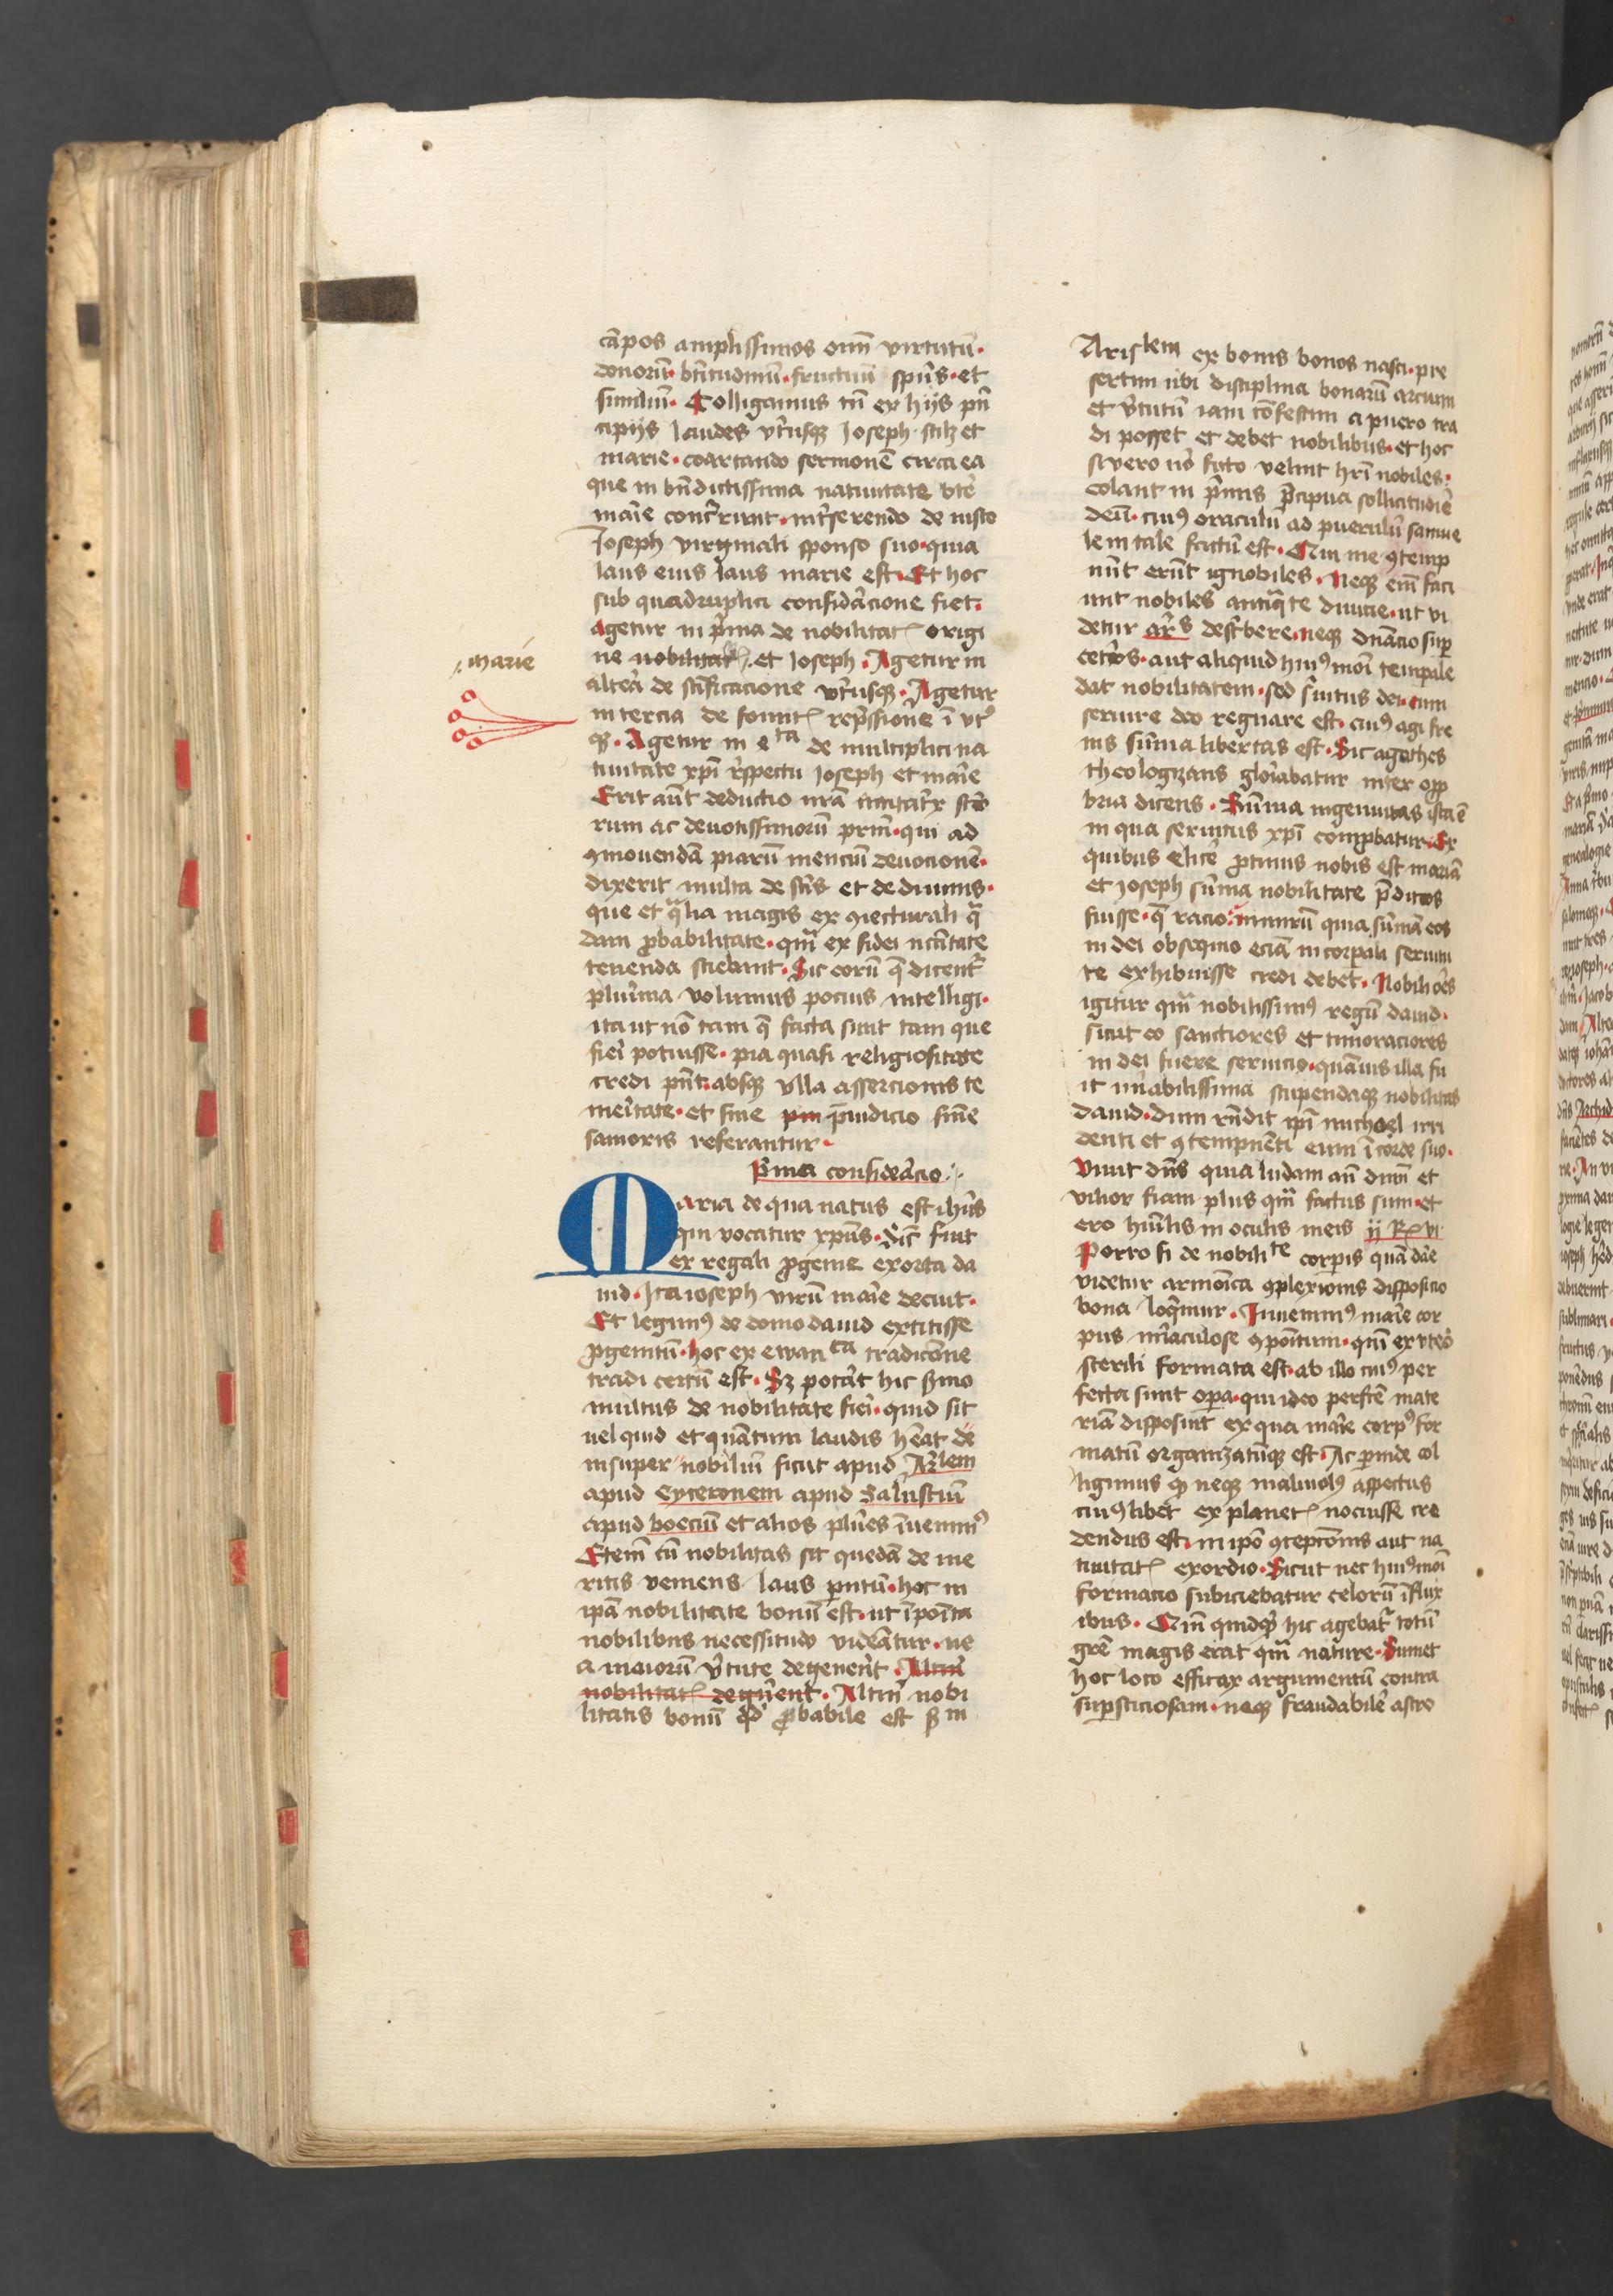 cāpos amplissimos om̄ virtutū.
donorū. btītudinū. fructuū spūs. et
similiū. Colligamus tn̄ ex hijs pn̄
cipijs laudes utriusqꝫ Joseph scilꝫ et
marie. coartando sermonē circa ea
que in bn̄dictissima natiuitate bte
marie concurrunt. inserendo de iusto
Joseph virginali sponso suo. quia
laus eius laus marie est. Et hoc
sub quadruplici consideracione fiet.
Agetur in prima de nobilitate origi
ne nobilitatꝭ. et Joseph. Agetur in
marie
altera de sctificacione utriusqꝫ. Agetur
in tercia de fomitꝭ repressione ī utꝰ
qꝫ. Agetur in 4ta de multiplici na
tiuitate xpi respectu Joseph et marie
Erit aut deductio nr̄a sctō
rum ac deuotissimorū pat̄rm. qui ad
ꝯmouendā piarū mencium deuocionē.
dixerit multa de sctīs et de diuinis.
que et qualia magis ex ꝯiecturali qua
dam probabilitate. qm̄ ex fidei nccitate
tenenda sciebant. Sic eorū que dicentr
plurima volumus pocius intelligi.
ita ut nō tam qꝫ facta sint tam que
fieri potuisse. pia quasi religiositate
credi pn̄t. absqꝫ ulla assercionis te
meritate. et sine pm p̄iudicio sine
sanioris referantur.
Prima consideracio
Maria de qua natus est ihūs
qui vocatur xpūs. Sic fuit
ex regali progenie exorta da
uid. Ita ioseph virū marie decuit.
Et legimꝰ de domo dauid extitisse
progenitū. hoc ex ewanca tradicōne
tradi certū est. Sꝫ poterat hic sermo
multus de nobilitate fieri. quid sit
uel quid et quantum laudis habeat de
insuper nobiliū sicut apud Arlem
apud Cyceronem apud Salustiū
apud boeciū et alios plures inuenimꝰ
Etenim cū nobilitas sit quedā de me
ritis veniens laus parentū. hoc in
ipa nobilitate bonū est. ut īpoīta
nobilibus necessitudo videatur. ne
a maiorū virtute degenerent. Altm̄
nobilitatꝭ degn̄ent. Altm̄ nobi
litatis bonū qd probabile est sm
Arislem ex bonis bonos nasci. pre
sertim ubi disciplina bonarū arcium
et virtutū iam cōfestim a puero tra
di posset et debet nobilibus. et hoc
si vero nō ficto velint hr̄i nobiles.
colant in primis precipua sollicitudīe
deū. cuiꝰ oraculū ad puerulū samue
lem tale factū est. Qui me ꝯtemp
nūt erūt ignobiles. Neqꝫ enim faci
unt nobiles antiquate diuicie. ut vi
detur ars describere. neqꝫ dnācio super
ceteros. aut aliquid huiꝰmōi temporale
dat nobilitatem. sed seruitus dei. cum
seruire deo regnare est. cuiꝰ agi fre
nis suma libertas est. Sic agathes
theologizans gloriabatur inter opp
bria dicens. Suma ingenuitas ista ē
in qua seruitus xpi comprobatur. Ex
quibus elicere protinus nobis est mariā
et Joseph suma nobilitate preditos
fuisse. qꝫ racio: nimirū quia sumā eos
in dei obsequio eciā in corporali seruitu
te exhibuisse credi debet. Nobiliores
igitur qm̄ nobilissimꝰ regū dauid.
sicut eo sanctiores et timoraciores
in dei fuere seruicio. quamuis illa fu
it mirabilissima stupendaqꝫ nobilitas
dauid. dum rn̄dit ipī michoel irri
denti et ꝯtempnēti eum ī corde suo.
Viuit dn̄s quia ludam an̄ dnm et
vilior fiam plus qm̄ factus sum. et
ero humilis in oculis meis ij R. vi
Porro si de nobilite corporis quā dare
videtur armōica ꝯplexionis disposicio
bona loquimur. Inuenimꝰ marie cor
pus miraculose ꝯpositum. qm̄ ex utero
sterili formata est. ab illo cuiꝰ per
fecta sunt opera. qui ideo perfecte mate
riā disposuit ex qua marie corpꝰ for
matū organizatūqꝫ est. Ac perinde col
ligimus qꝫ neqꝫ maliuolꝰ aspectus
cuiꝰlibet ex planetꝭ nocuisse cre
dendus est. in ipō ꝯcepcōnis aut na
tiuitatꝭ exordio. Sicut nec huiꝰmōi
formacio subiciebatur celorū īflux
ibus. Qm̄ quidquid hic agebatr totū
gre magis erat qm̄ nature. Sumet
hoc loco efficax argumentū contra
supersticiosam. neqꝫ fraudabilē astro